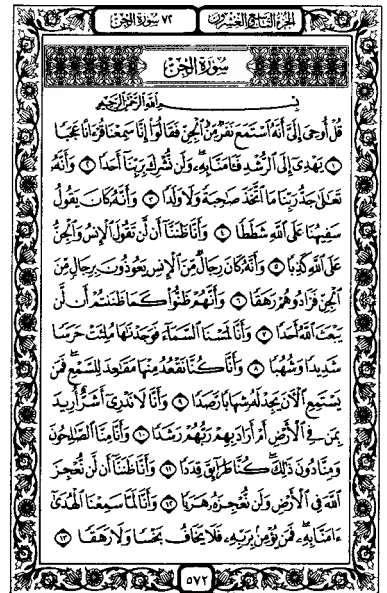 الجزء التاسع والعشرون ٧٢ سورة الجن
سورة الجن
بِسْمِ اللَّهِ الرَّحْمَٰنِ الرَّحِيمِ
قُلْ أُوحِيَ إِلَيَّ أَنَّهُ اسْتَمَعَ نَفَرٌ مِّنَ الْجِنِّ فَقَالُوا إِنَّا سَمِعْنَا قُرْآنًا عَجَبًا
١ يَهْدِي إِلَى الرُّشْدِ فَآمَنَّا بِهِ ۖ وَلَن نُّشْرِكَ بِرَبِّنَا أَحَدًا ٢ وَأَنَّهُ
تَعَالَىٰ جَدُّ رَبِّنَا مَا اتَّخَذَ صَاحِبَةً وَلَا وَلَدًا ٣ وَأَنَّهُ كَانَ يَقُولُ
سَفِيهُنَا عَلَى اللَّهِ شَطَطًا ٤ وَأَنَّا ظَنَنَّا أَن لَّن تَقُولَ الْإِنسُ وَالْجِنُّ
عَلَى اللَّهِ كَذِبًا ٥ وَأَنَّهُ كَانَ رِجَالٌ مِّنَ الْإِنسِ يَعُوذُونَ بِرِجَالٍ مِّنَ
الْجِنِّ فَزَادُوهُمْ رَهَقًا ٦ وَأَنَّهُمْ ظَنُّوا كَمَا ظَنَنتُمْ أَن لَّن
يَبْعَثَ اللَّهُ أَحَدًا ٧ وَأَنَّا لَمَسْنَا السَّمَاءَ فَوَجَدْنَاهَا مُلِئَتْ حَرَسًا
شَدِيدًا وَشُهُبًا ٨ وَأَنَّا كُنَّا نَقْعُدُ مِنْهَا مَقَاعِدَ لِلسَّمْعِ ۖ فَمَن
يَسْتَمِعِ الْآنَ يَجِدْ لَهُ شِهَابًا رَّصَدًا ٩ وَأَنَّا لَا نَدْرِي أَشَرٌّ أُرِيدَ
بِمَن فِي الْأَرْضِ أَمْ أَرَادَ بِهِمْ رَبُّهُمْ رَشَدًا ١٠ وَأَنَّا مِنَّا الصَّالِحُونَ
وَمِنَّا دُونَ ذَٰلِكَ ۖ كُنَّا طَرَائِقَ قِدَدًا ١١ وَأَنَّا ظَنَنَّا أَن لَّن نُّعْجِزَ
اللَّهَ فِي الْأَرْضِ وَلَن نُّعْجِزَهُ هَرَبًا ١٢ وَأَنَّا لَمَّا سَمِعْنَا الْهُدَىٰ
آمَنَّا بِهِ ۖ فَمَن يُؤْمِن بِرَبِّهِ فَلَا يَخَافُ بَخْسًا وَلَا رَهَقًا ١٣
٥٧٢